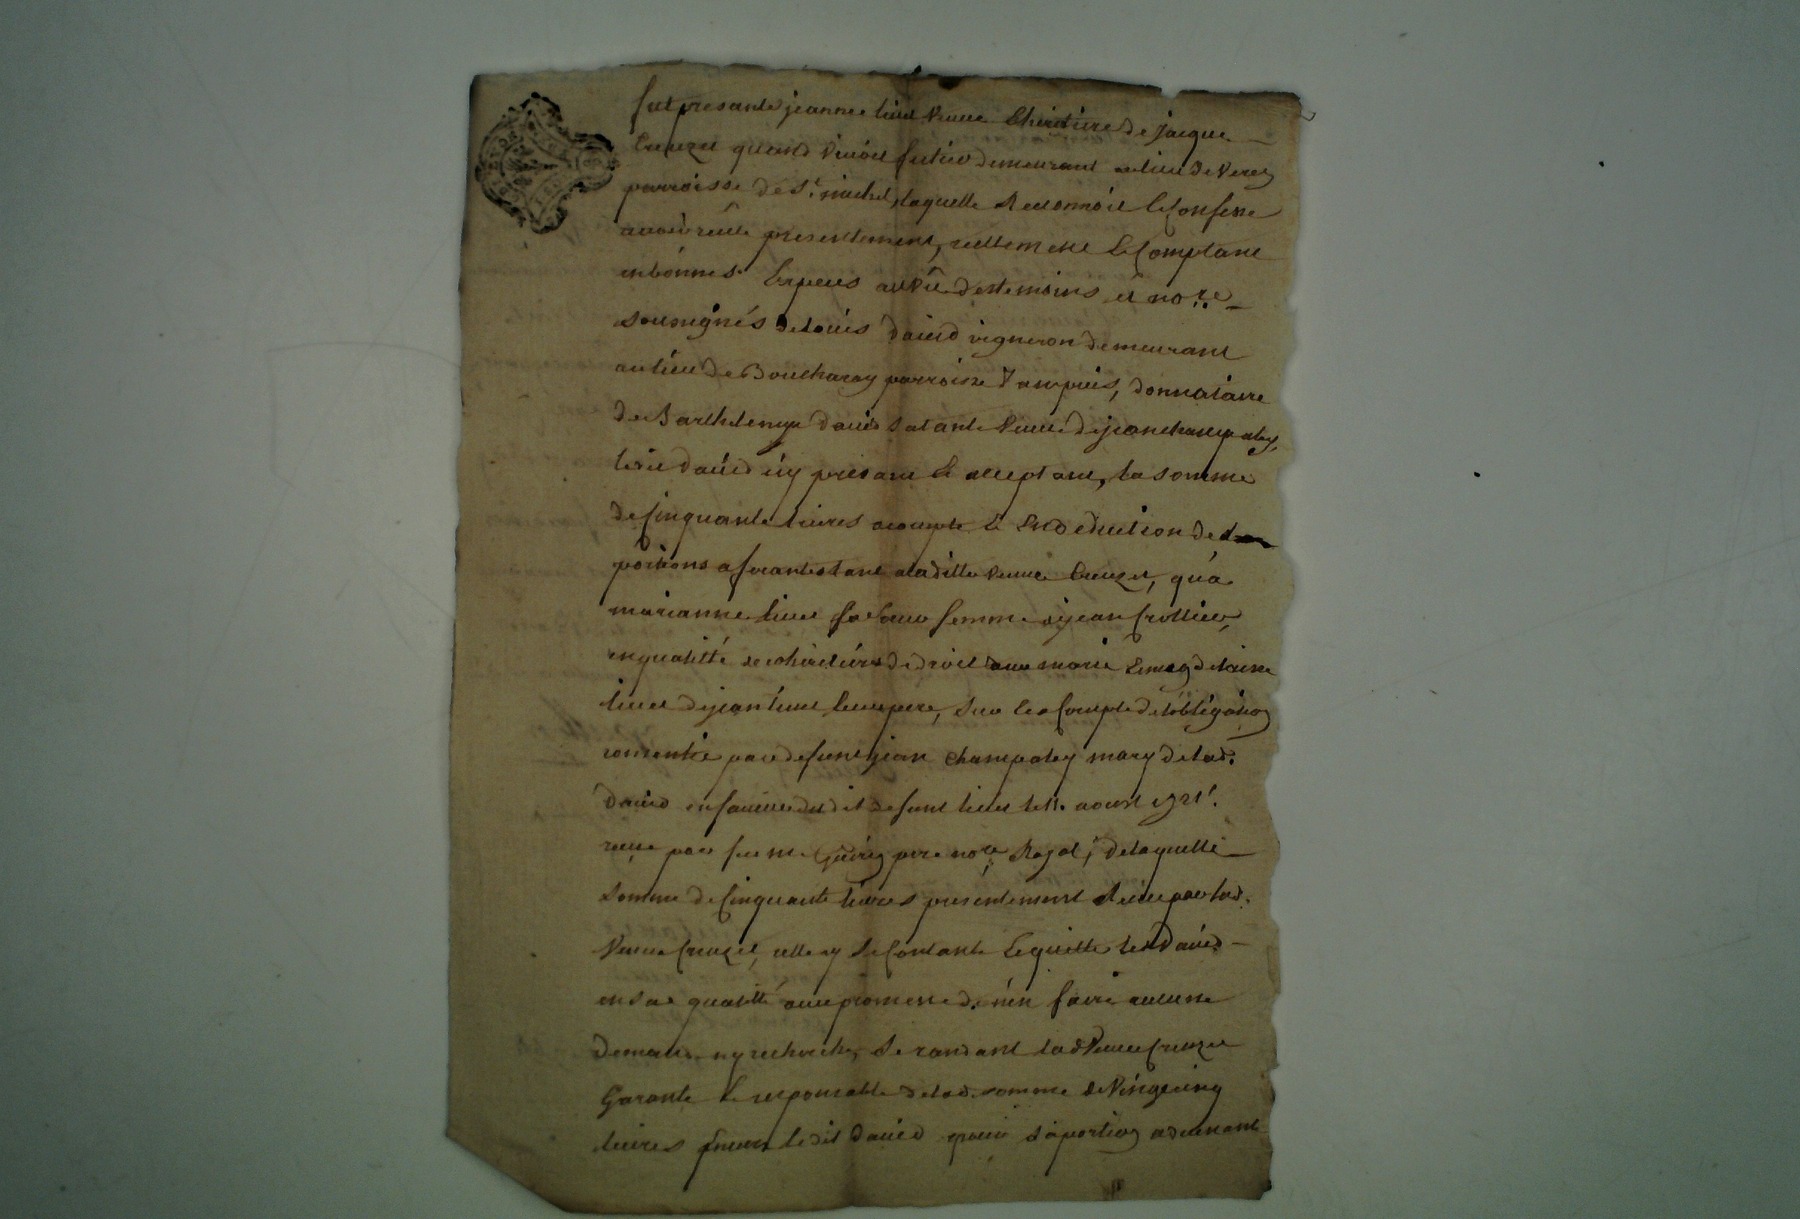 fut presante jeanne liuet veuve & heritiere de jacque
Creuzet quand vivoit futier demeurant au lieu de Verez
parroisse de St. michel, laquelle Reconnoit & Confesse
avoir reçû presentement, reellement & Comptant
en bonnes Especes au vû des temoins et no.re
sousignés de Loüis david vigneron demeurant
au lieu de Boucharey parroisse d'ampuis, donnataire
de Barthelemye david sa tante veuve de jean champaley,
ledit david icy presant & acceptant, la somme
de Cinquante livres acompte & En deduction de
portions aferantes tant a laditte veuve Creuzet, qu'a
marianne liuet sa soeur femme a jean Crottier,
en qualitté de coheritiéres de droit avec marie & magdelaine
liuet de jean liuet leur pere, sur le Compte de lobligation
consentie par defunt jean champaley mary de lad.
david en faveur dudit defunt liuet le 11. aoust 1721.
reçue par feu me pere no.re Royal, de laquelle
somme de Cinquante livres presentement Reçue par lad.
Veuve Creuzet, celle cy se Contante & quitte led. david
en sa qualitté avec promesse de n'en faire aucune
demande ny recherche, se randant lad. Veuve Creuzet
Garante & responsable de lad. somme de Vingt cinq
livres Envers ledit david pour la portion advenant